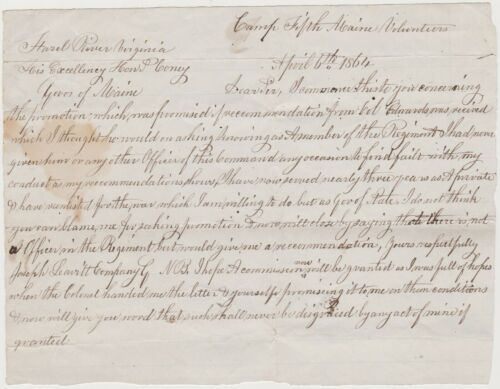 Camp Fifth Maine Volunteers
Hazel River Virginia
April 6th 1864
His Excellency Hon.d Coney
Govor of Maine
Dear Sir I commence this to you concerning
the promotion which was promised if recommendation from Col Edwards was recived
which I thought he would on asking knowing as A member of the Regiment I had never
given him or any other Officer of this Command any occasion to find fault with my
conduct as my recommendations shows I have now served nearly three years as A private
& have reenlisted for the war which I am willing to do but as Govor of State I do not think
you can blame me for asking promotion & now will close by saying that there is not
a Officer in the Regiment but would give me a recommendation, Yours respectfully
Joseph Leavitt Company G NB. I hope A commission will be granted as I was full of hopes
when the Colonel handed me the letter & yourself promising it to me on them conditions
& now will give you word that such shall never be disgraced by any act of mine if
granted